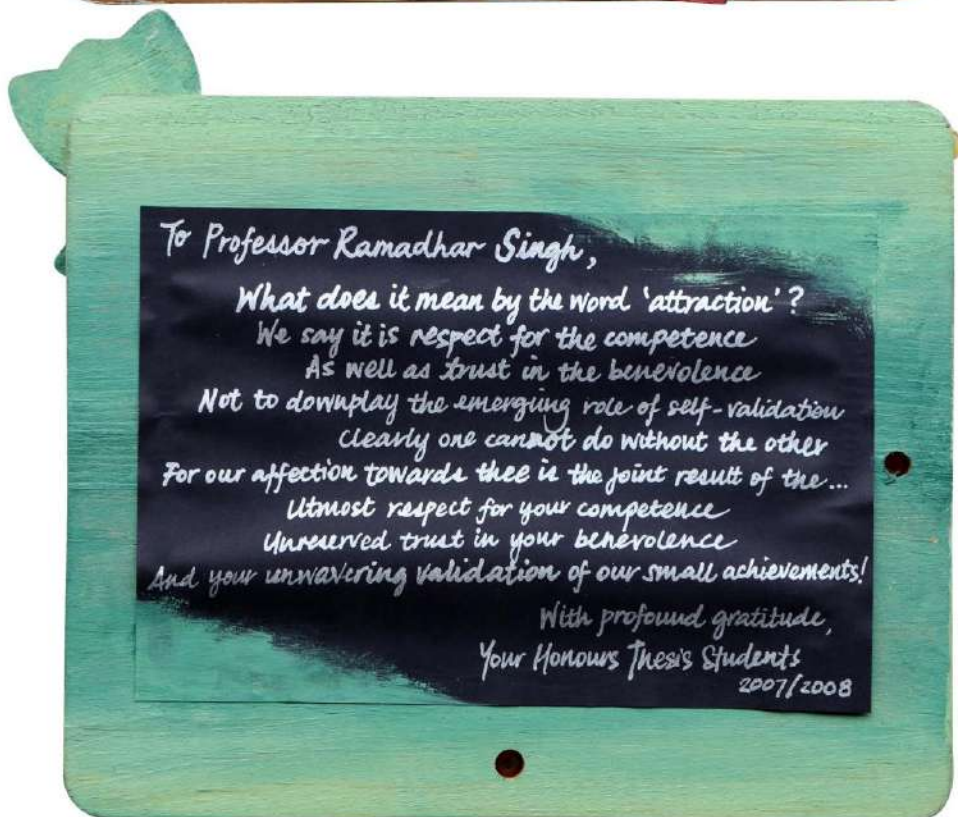 To Professor Ramadhar Singh,
What does it mean by the word 'attraction'?
We say it is respect for the competence
As well as trust in the benevolence
Not to downplay the emerging role of self-validation
Clearly one cannot do without the other
For our affection towards thee is the joint result of the...
Utmost respect for your competence
Unreserved trust in your benevolence
And your unwavering validation of our small achievements!
With profound gratitude,
Your Honours Thesis Students
2007/2008